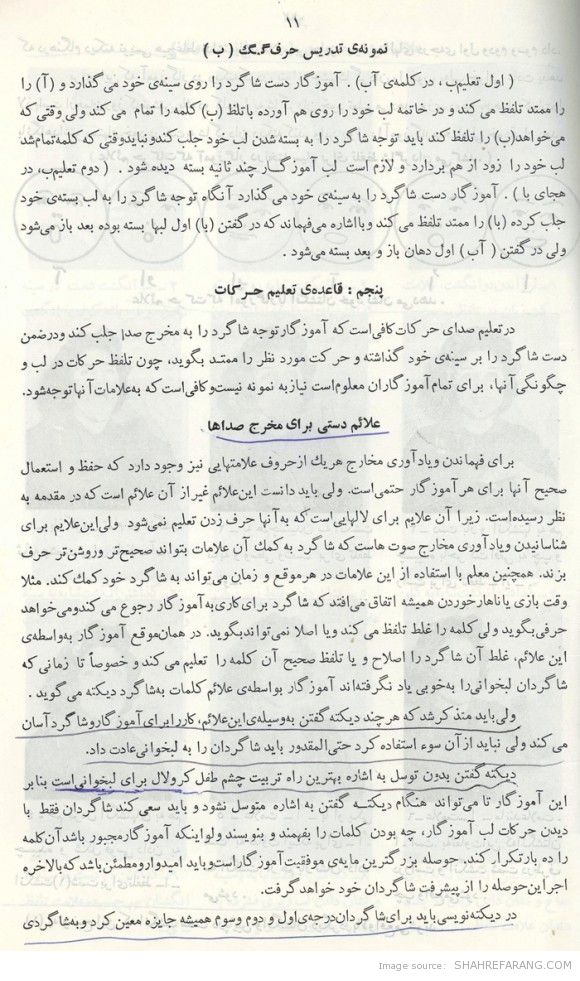 ۱۱
نمونه‌ی تدریس حرف گنگ ( ب )
( اول تعلیم‌ب ، در کلمه‌ی آب ) . آموزگار دست شاگرد را روی سینه‌ی خود می گذارد و ( آ ) را
را ممتد تلفظ می کند و در خاتمه لب خود را روی هم آورده باتلفظ (ب) کلمه را تمام می کند ولی وقتی که
می‌خواهد (ب) را تلفظ کند باید توجه شاگرد را به بسته شدن لب خود جلب کند و نباید وقتی که کلمه تمام شد
لب خود را زود از هم بردارد و لازم است لب آموزگار چند ثانیه بسته دیده شود . ( دوم تعلیم‌ب، در
هجای با ) . آموزگار دست شاگرد را به سینه‌ی خود می گذارد آنگاه توجه شاگرد را به لب بسته‌ی خود
جلب کرده (با) را ممتد تلفظ می کند و بااشاره می‌فهماند که در گفتن (با) اول لبها بسته بوده بعد باز می‌شود
ولی در گفتن ( آب ) اول دهان باز و بعد بسته می‌شود .
پنجم : قاعده‌ی تعلیم حرکات
در تعلیم صدای حرکات کافی است که آموزگار توجه شاگرد را به مخرج صدا جلب کند و درضمن
دست شاگرد را بر سینه‌ی خود گذاشته و حرکت مورد نظر را ممتد بگوید، چون تلفظ حرکات در لب و
چگونگی آنها، برای تمام آموزگاران معلوم است نیاز به نمونه نیست و کافی است که به علامات آنها توجه شود.
علائم دستی برای مخرج صداها
برای فهماندن و یادآوری مخارج هریك از حروف علامتهایی نیز وجود دارد که حفظ و استعمال
صحیح آنها برای هر آموزگار حتمی‌است. ولی باید دانست این علائم غیر از آن علائم است که در مقدمه به
نظر رسیده‌است. زیرا آن علایم برای لالهایی‌است که به آنها حرف زدن تعلیم نمی‌شود ولی این علایم برای
شناسانیدن و یادآوری مخارج صوت هاست که شاگرد به کمك آن علامات بتواند صحیح‌تر و روشن‌تر حرف
بزند. همچنین معلم با استفاده از این علامات در هر موقع و زمان می‌تواند به شاگرد خود کمك کند. مثلا
وقت بازی یا ناهار خوردن همیشه اتفاق می‌افتد که شاگرد برای کاری به آموزگار رجوع می کند و می خواهد
حرفی بگوید ولی کلمه را غلط تلفظ می کند و یا اصلا نمی‌تواند بگوید. در همان موقع آموزگار به‌واسطه‌ی
این علائم، غلط آن شاگرد را اصلاح و یا تلفظ صحیح آن کلمه را تعلیم می کند و خصوصاً تا زمانی که
شاگردان لبخوانی را به‌خوبی یاد نگرفته‌اند آموزگار بواسطه‌ی علائم کلمات به شاگرد دیکته می گوید .
ولی باید متذکر شد که هر چند دیکته گفتن به‌وسیله‌ی این علائم، کار را برای آموزگار و شاگرد آسان
می کند ولی نباید از آن سوء استفاده کرد حتی‌المقدور باید شاگردان را به لبخوانی عادت داد.
دیکته گفتن بدون توسل به اشاره بهترین راه تربیت چشم طفل کرولال برای لبخوانی است بنابر
این آموزگار تا می‌تواند هنگام دیکته گفتن به اشاره متوسل نشود و باید سعی کند شاگردان فقط با
دیدن حرکات لب آموزگار، چه بودن کلمات را بفهمند و بنویسند ولو اینکه آموزگار مجبور باشد آن کلمه
را ده بار تکرار کند. حوصله بزرگترین مایه‌ی موفقیت آموزگار است و باید امیدوار و مطمئن باشد که بالاخره
اجر این حوصله را از پیشرفت شاگردان خود خواهد گرفت.
در دیکته‌نویسی باید برای شاگردان درجه‌ی اول و دوم و سوم همیشه جایزه معین کرد و به شاگردی
Image source: SHAHREFARANG.COM